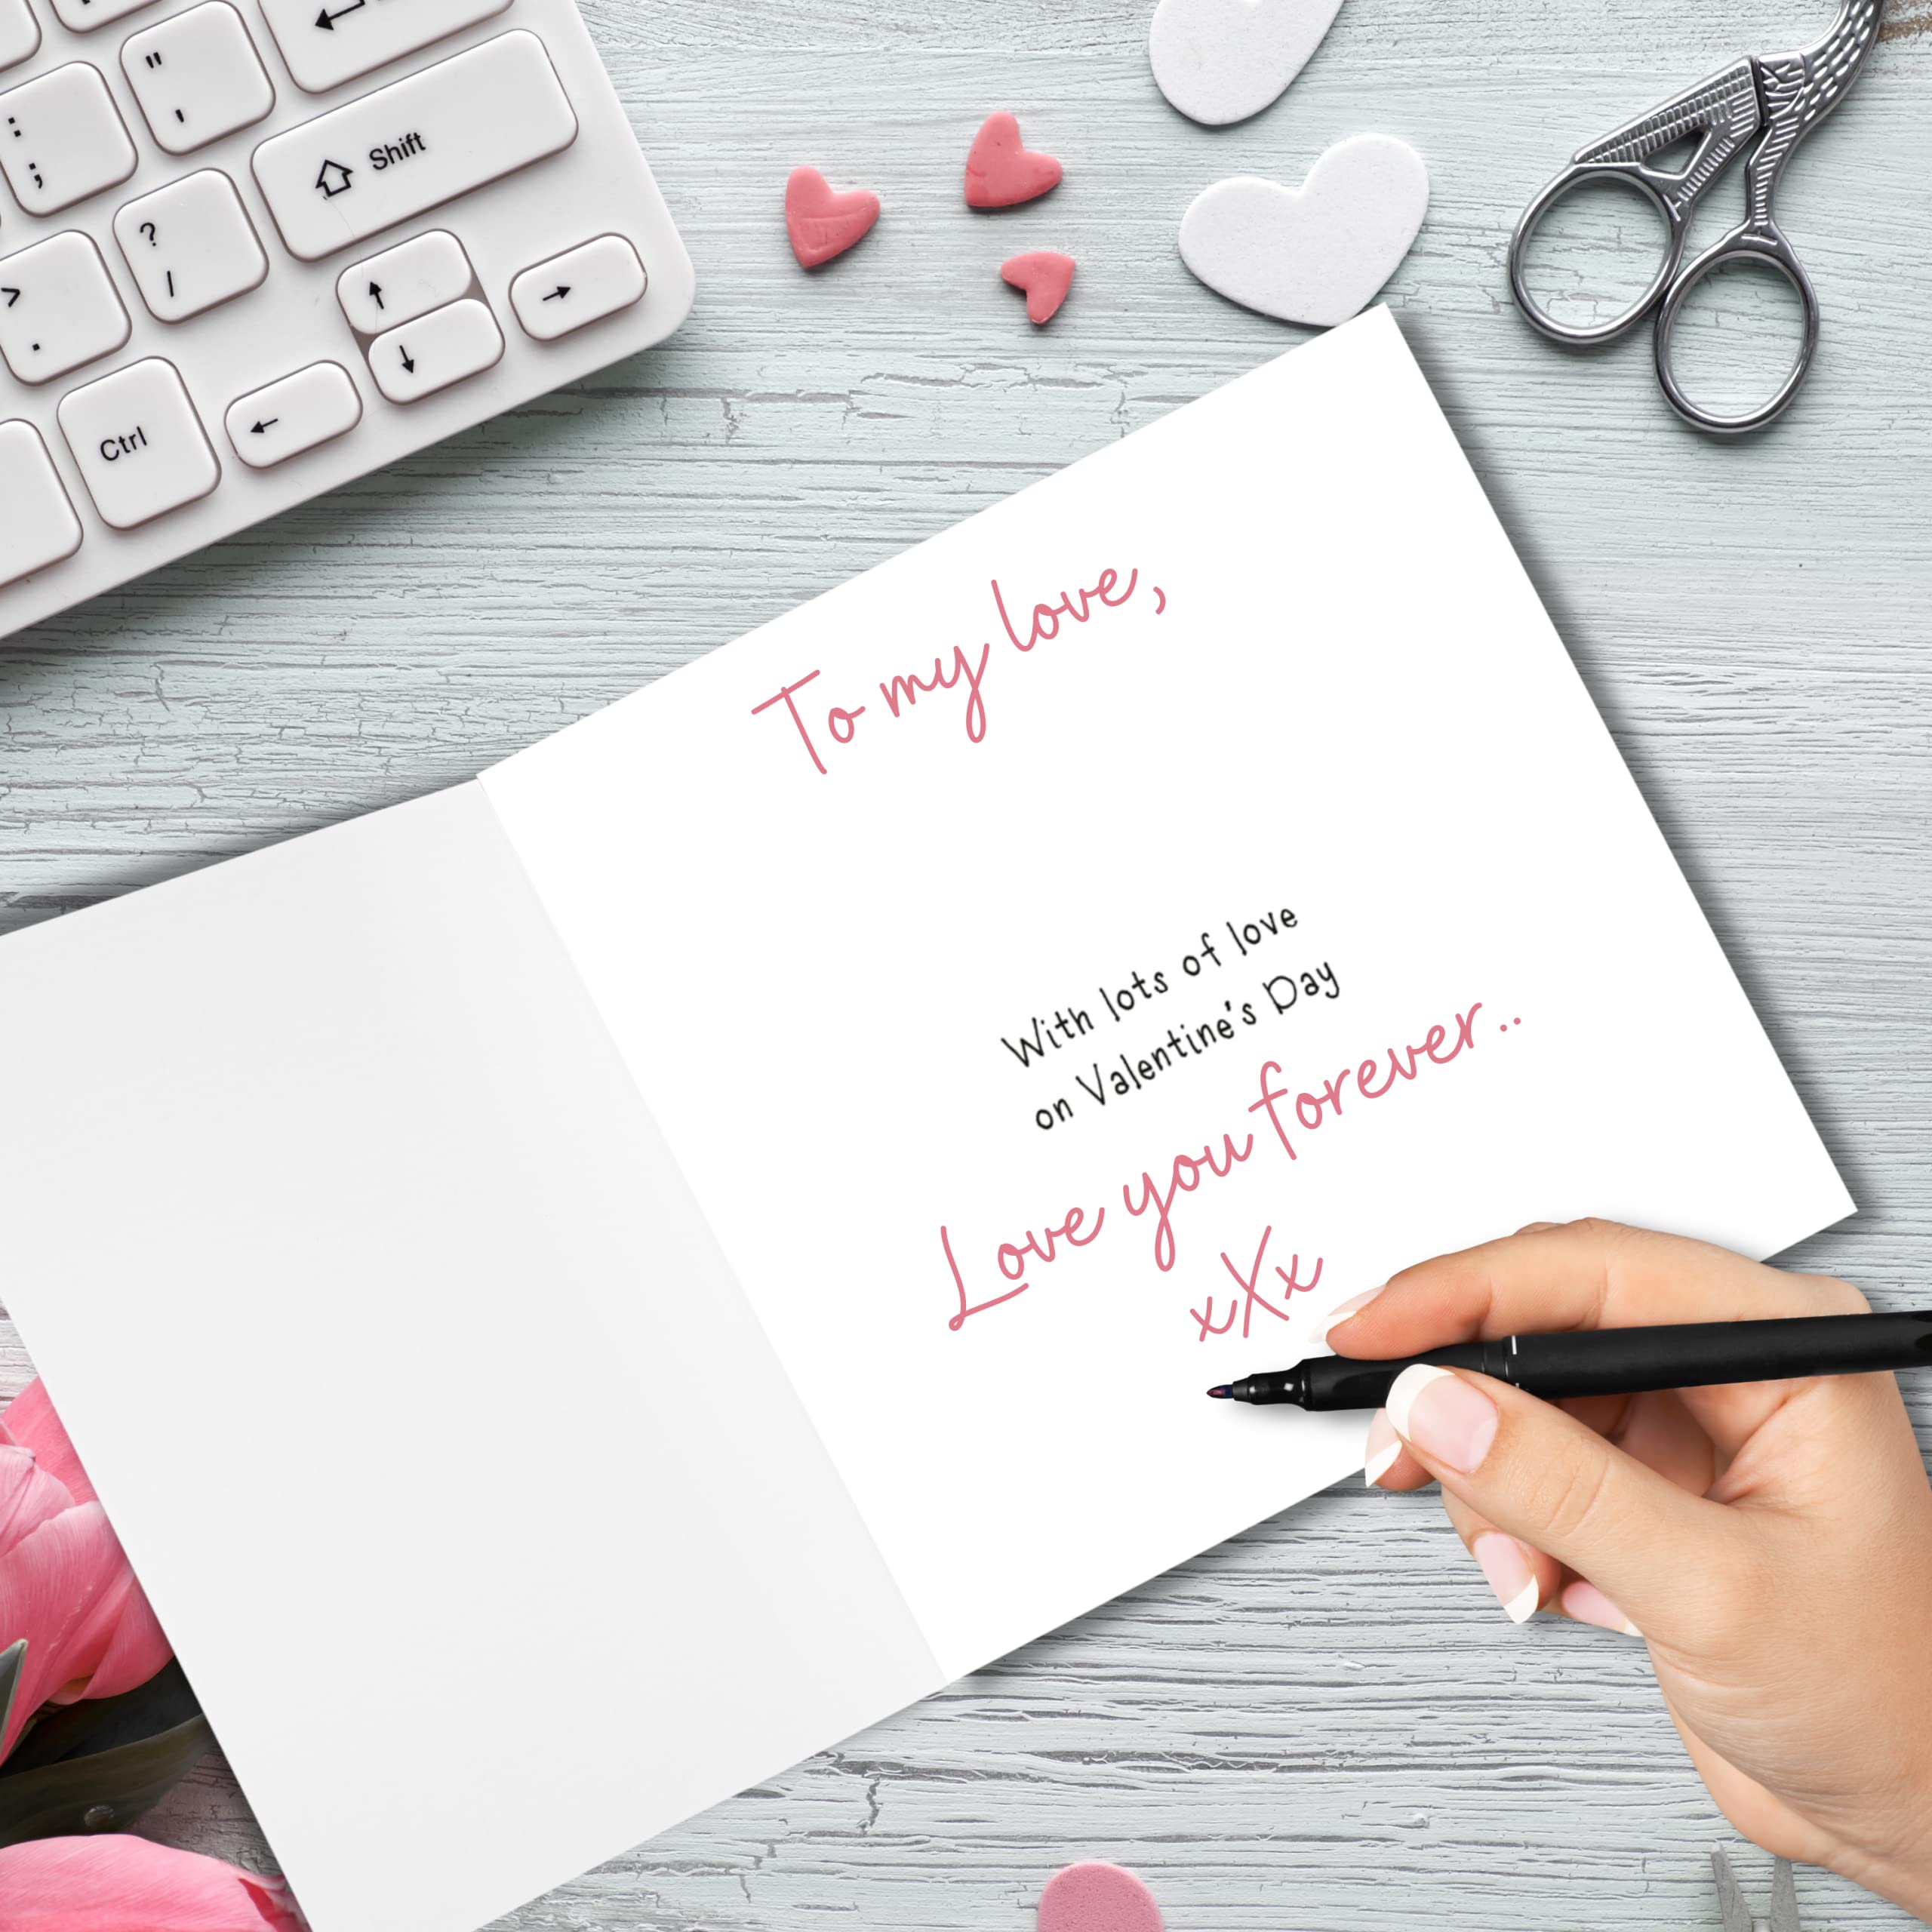 "
'
:
;
Shift
?
/
>
.
Ctrl
To my love,
With lots of love
on Valentine's Day
Love you forever..
xXx